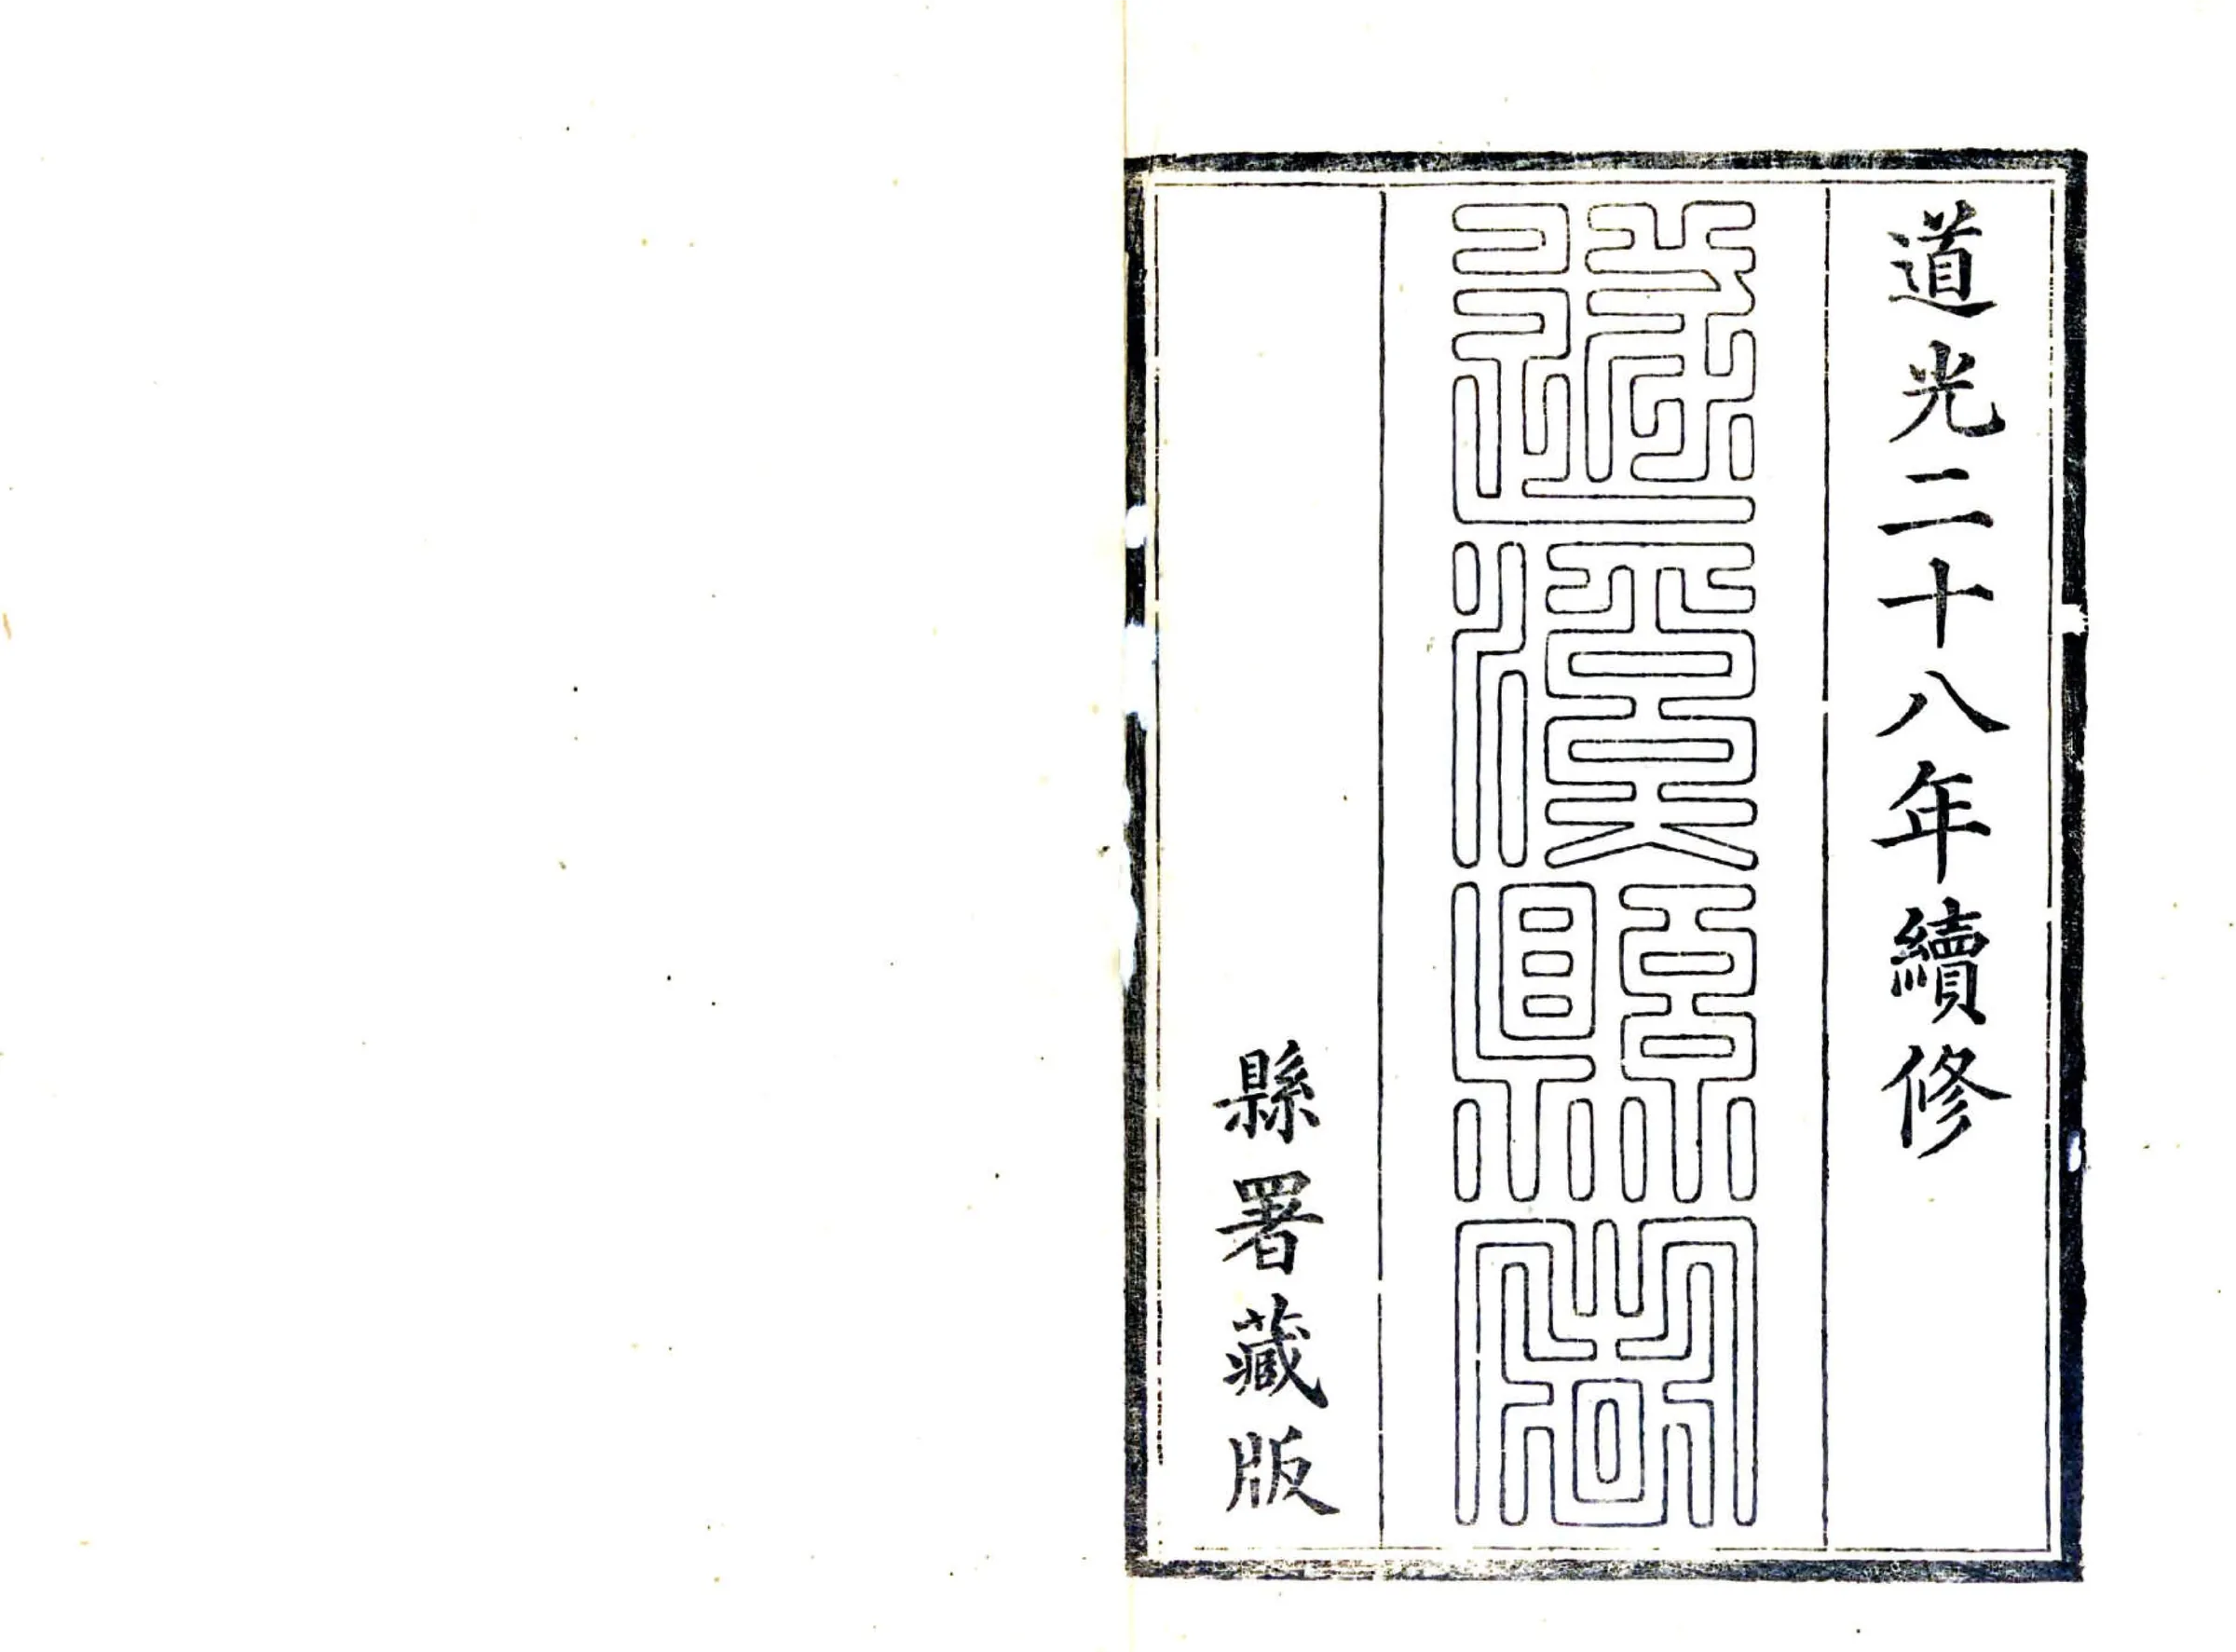 道光二十八年續修
遂溪縣志
縣署藏版